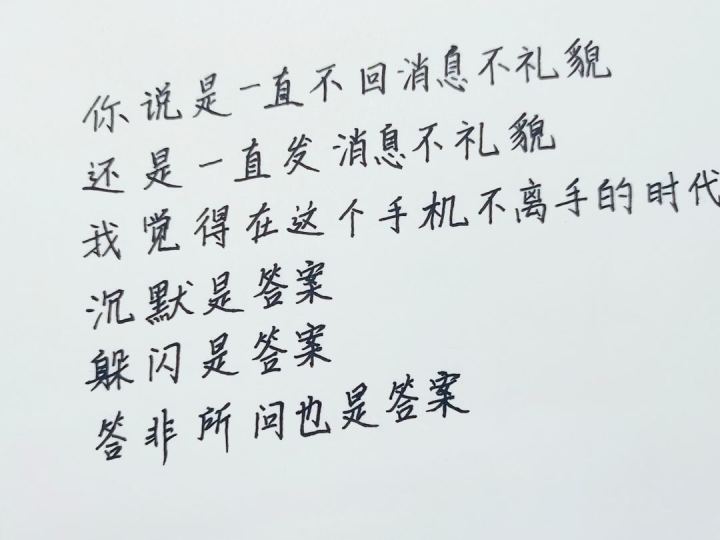 你说是一直不回消息不礼貌
还是一直发消息不礼貌
我觉得在这个手机不离手的时代
沉默是答案
躲闪是答案
答非所问也是答案